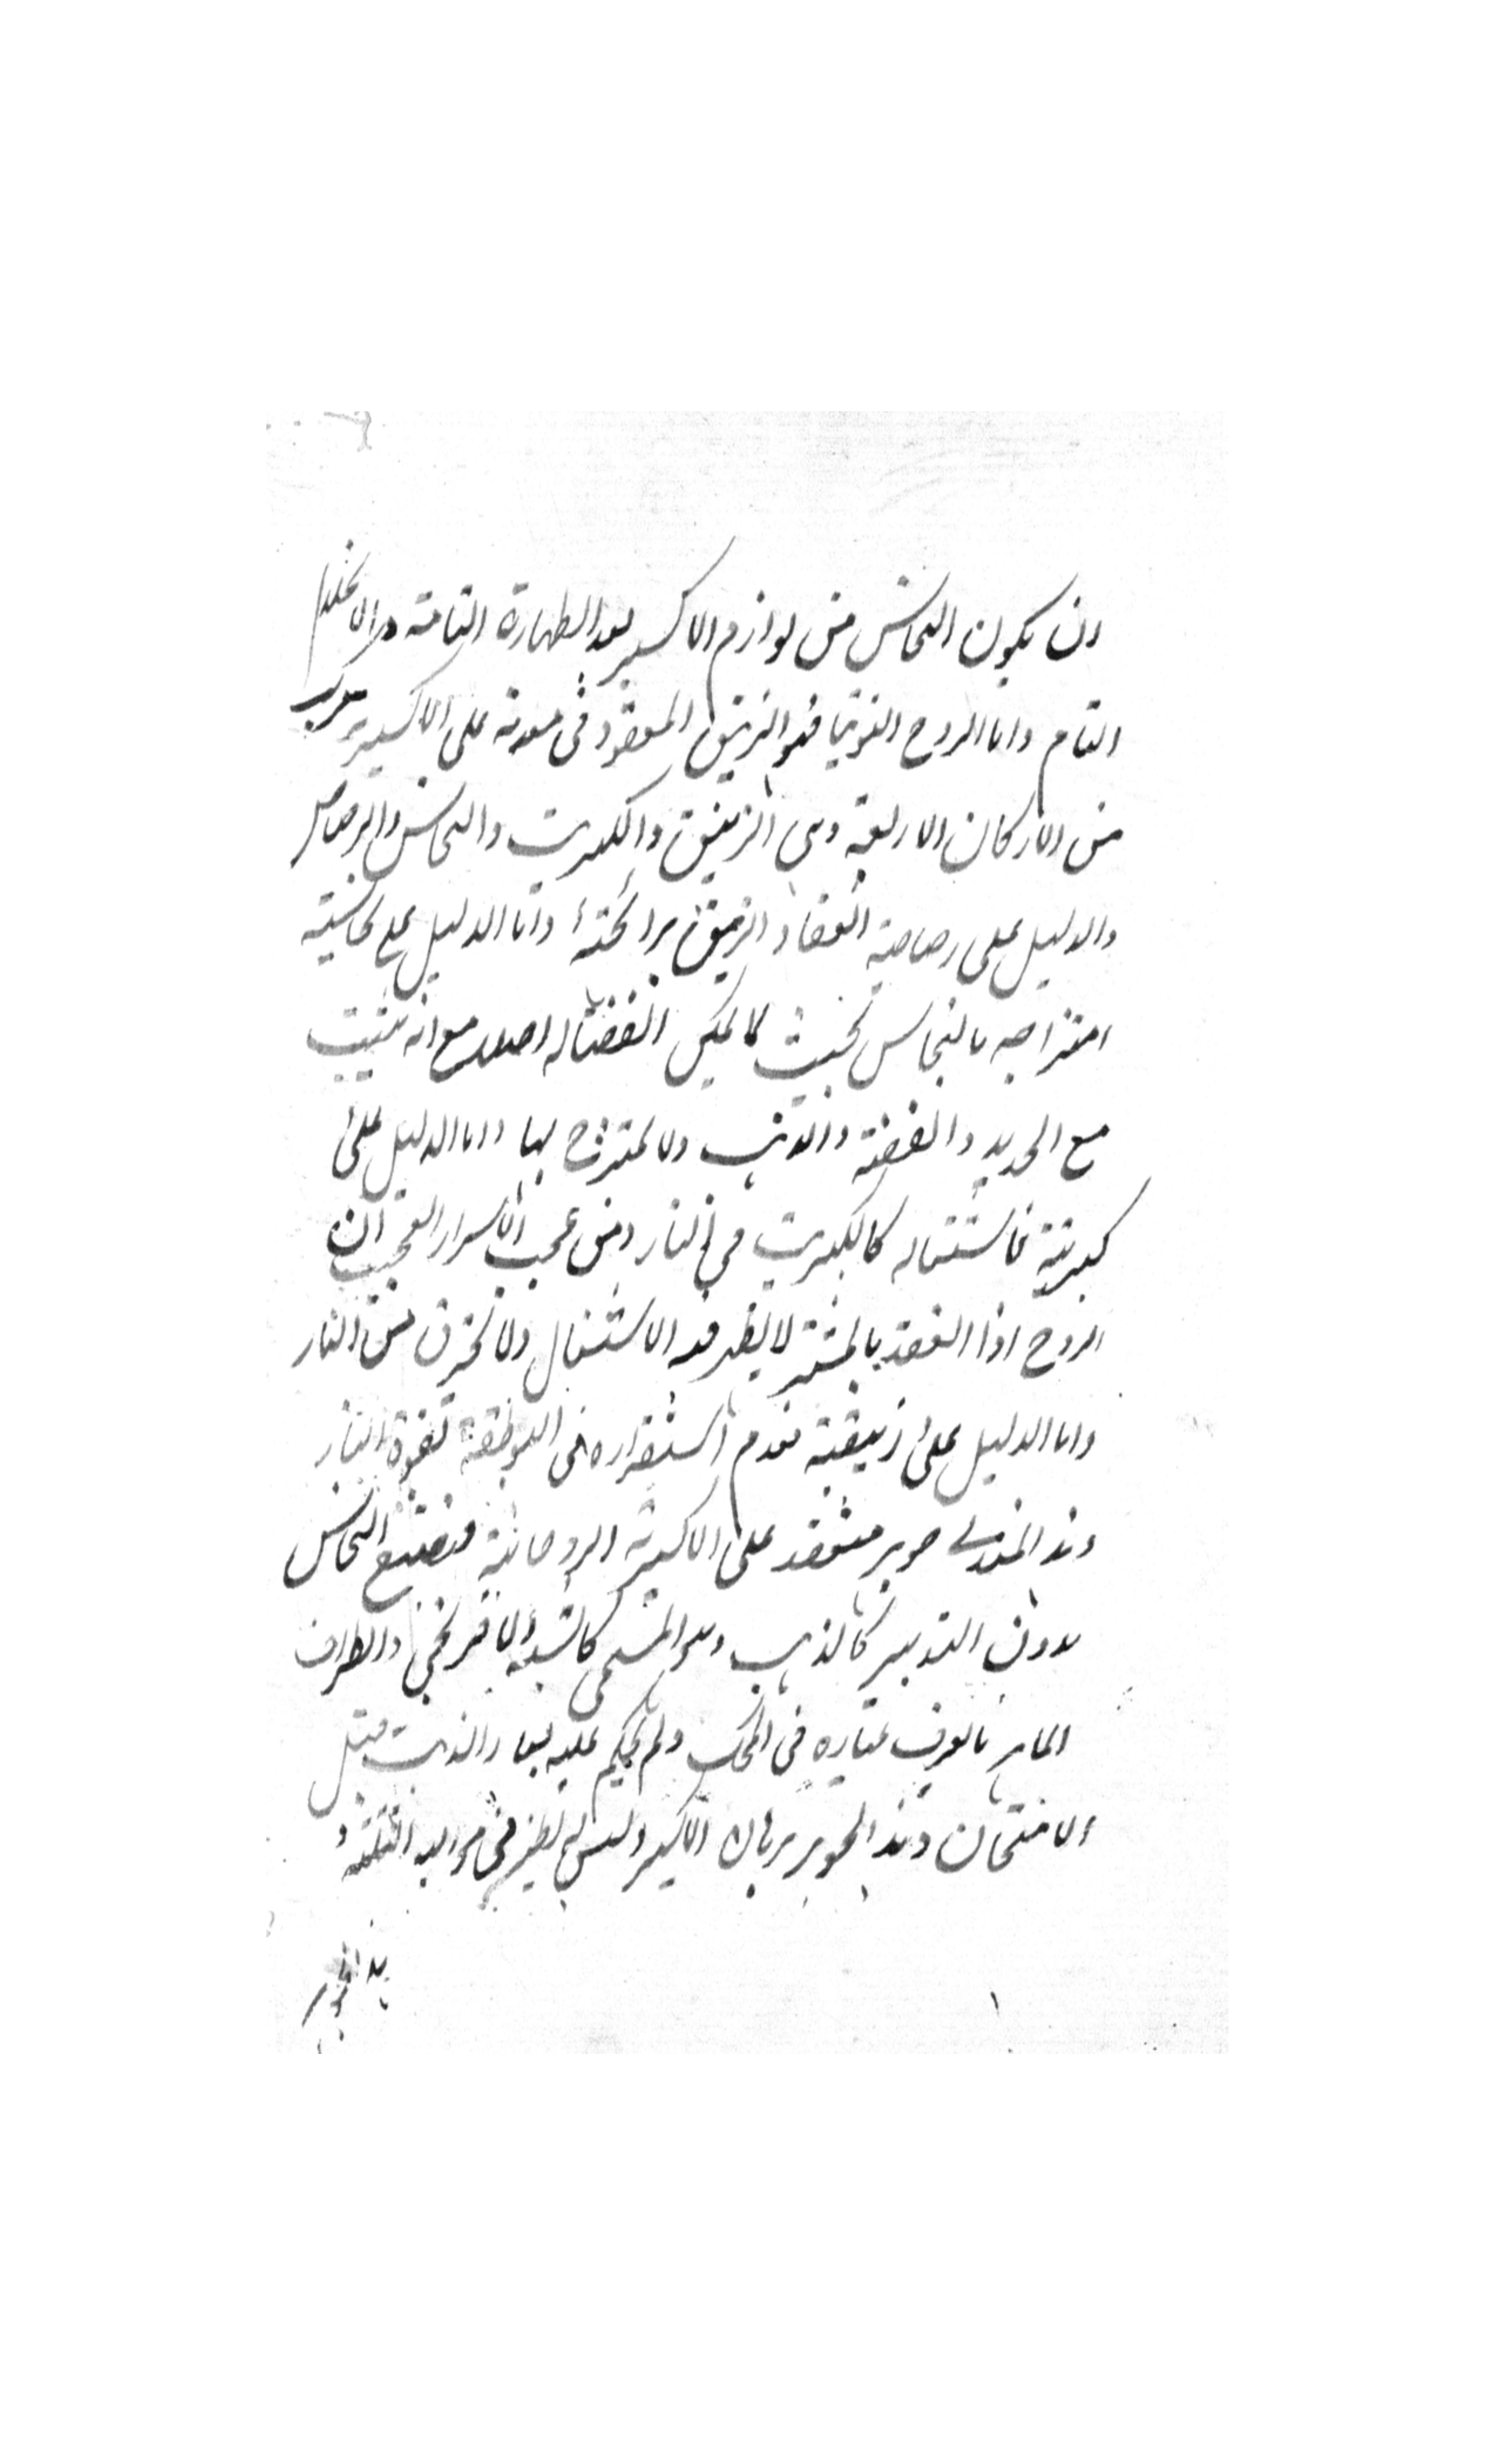 ان يكون النحاس من لوازم الاكسير بعد الطهارة التامة والانحلال
التام واما الروح التوتيا فهو الزيبق المعقود فى معدنه على الاكسيرية مركب
من الاركان الاربعة وهى الزيبق والكبريت والنحاس والرصاص
والدليل على رصاصية انعقاد الزيبق برائحته واما الدليل على نحاسيته
امتزاجه بالنحاس بحيث لا يمكن انفصاله اصلا مع انه يثبت
مع الحديد والفضة والذهب ولا يمتزج بها واما الدليل على
كبريتية فاشتعاله كالكبريت فى النار ومن عجب الاسرار العجيب ان
الروح اذا انعقد بالمشتر لا يظهر منه الاشتعال ولا يحترق من النار
واما الدليل على زيبقية فعدم استقراره فى البوطقة بقوة النار
وهذا المعدنى جوهر منعقد على الاكسيرية الروحانية فيصبغ النحاس
بدون التدبير كالذهب وهو المسمى كالشبه الافرنجى والصراف
الماهر يعرف عياره فى المحك ولم يحكم عليه بعيار الذهب قبل
الامتحان وهذا الجوهر برهان الاكسير وليس له نظير فى مواليد الثلثة و